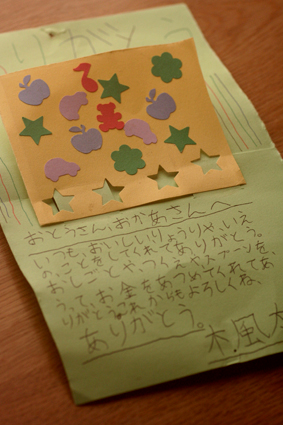 りがとう
おとうさん、おかあさんへ
いつも、おいしいりょうりや、いえ
の、ことをしてくれてありがとう。
おしごとや、つくえやスプーンを
うって、お金をあつめてくれてあ
りがとうこれからもよろしくね、
ありがとう。
木風